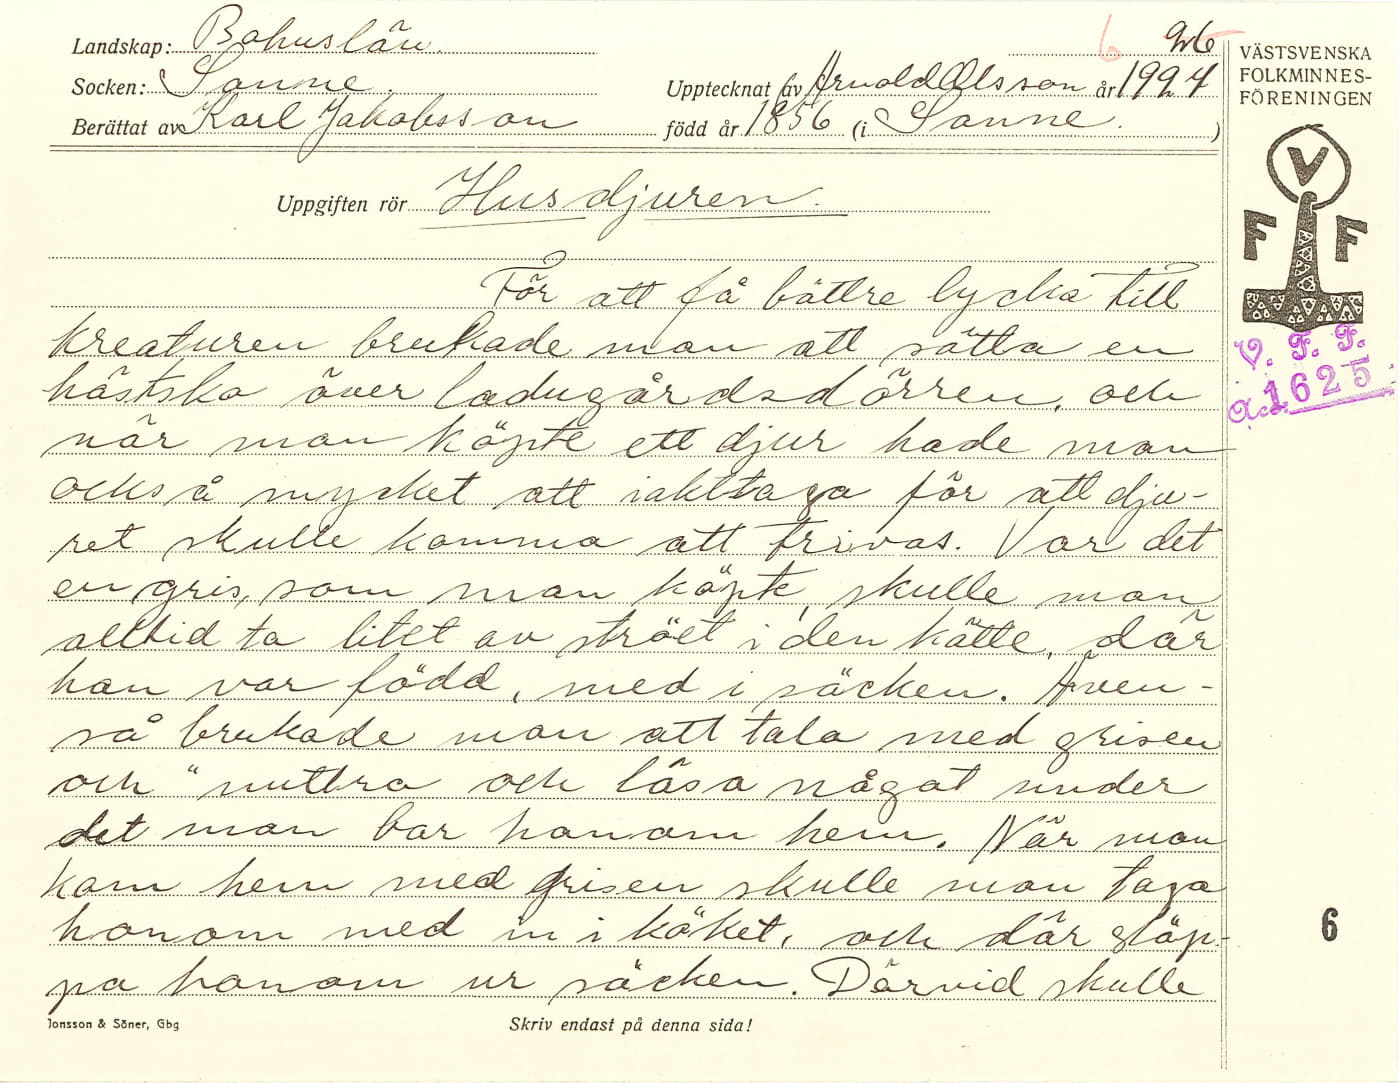 Landskap: Bohuslän.
6 26
Socken: Sanne.
Upptecknat av Arnold Olsson år 1927
Berättat av Karl Jakobsson
född år 1856 (i Sanne. )
Uppgiften rör Husdjuren.
VÄSTSVENSKA
FOLKMINNES-
FÖRENINGEN
V
F F
V. F. F.
Acc. 1625
För att få bättre lycka till
kreaturen brukade man att sätta en
hästsko över ladugårdsdörren, och
när man köpte ett djur hade man
också mycket att iakttaga för att dju-
ret skulle komma att trivas. Var det
en gris, som man köpte, skulle man
alltid ta litet av ströet i den kätte, där
han var född, med i säcken. Även-
så brukade man att tala med grisen
och "nuttra och läsa något under
det man bar honom hem. När man
kom hem med grisen skulle man taga
honom med in i köket, och där släp-
pa honom ur säcken. Därvid skulle
6
Jonsson & Söner, Gbg
Skriv endast på denna sida!